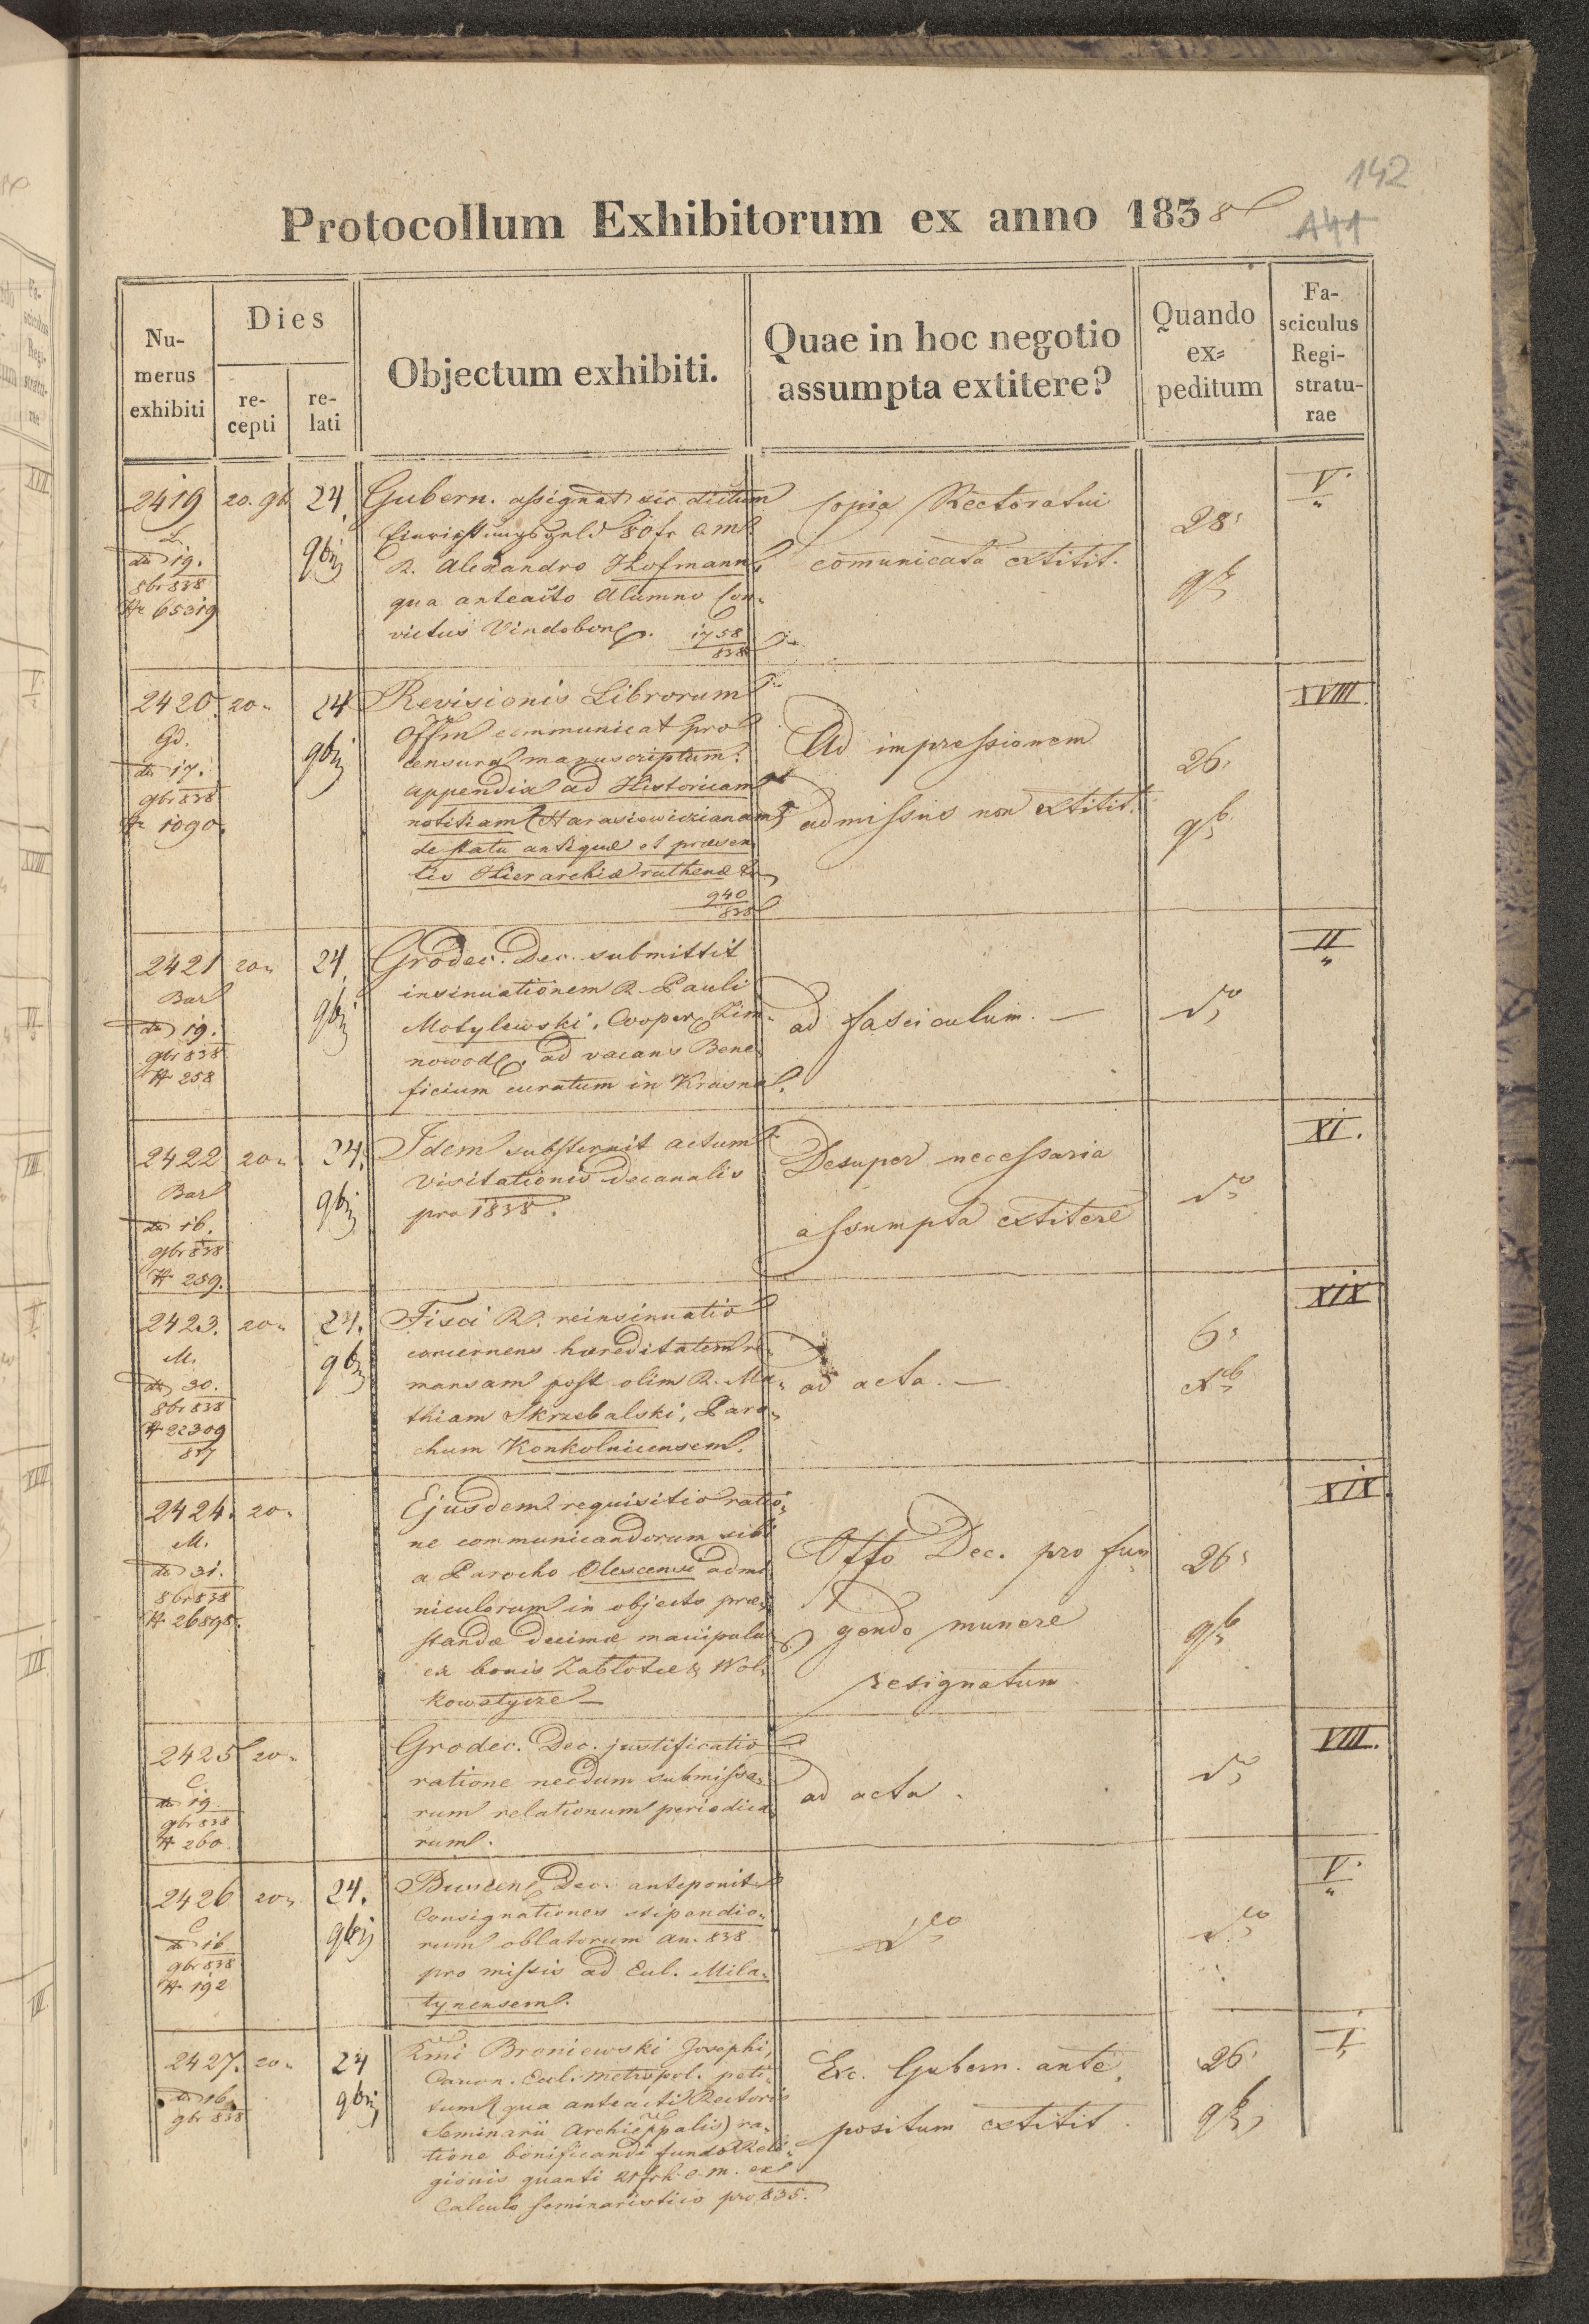 142
141
Protocollum Exhibitorum ex anno 1838
Nu-
merus
exhibiti
Dies
re-
cepti
re-
lati
Objectum exhibiti.
Quae in hoc negotio
assumpta extitere?
Quando
ex=
peditum
Fa-
sciculus
Regi-
stratu-
rae
2419
L.
dto 19.
8br 838
N 65319
20. 9b
24.
9bij
Gubern. assignat sic dictum
Einrichtungsgeld 80 fr
R. Alexandro Hofmann
qua anteacto Alumno Con-
victus Vindobon.
1758
838
Copia Rectoratui
comunicata extitit.
28
V.
2420.
Gd.
dto 17.
9br 838
N 1090.
20
24
9bij
Revisionis Librorum
Offm communicat pro
censura manuscriptum:
appendix ad Historicam
notitiam (Harasiewiczianam)
de statu antiquae et praesen-
tis Hierarchiae ruthenae
940
838
Ad impressionem
admissus non extitit.
26.
9b
XVIII.
2421
Bar
dto 19.
9br 838
N 258
20
24.
9bij
Grodec. Dec. submittit
insinuationem R. Pauli
Motylewski, Cooper. Zim-
nowod. ad vacans Bene-
ficium curatum in Krasna.
ad fasciculum. —
dto
II
2422
Bar
dto 16.
9br 838
N 259.
20
24.
9bij
Idem substernit actum
visitationis decanalis
pro 1838.
Desuper necessaria
assumpta extitere
dto
XI.
2423.
M.
dto 30.
8br 838
N 22309
837
20
24.
9bij
Fisci R. reinsinuatio
concernens haereditatem re-
mansam post olim R. Ma-
thiam Skrzebalski, Paro-
chum Konkolnicensem.
ad acta. —
6
Xb
XIX
2424.
M.
dto 31.
8br 838
N 26898.
20
Ejusdem requisitio ratio-
ne communicandorum sibi
a Parocho Olescensi admi-
niculorum in objecto prae-
standae decimae manipula
ex bonis Zabłotce & Woł-
kowatycze —
Offo Dec. pro fun-
gendo munere
resignatum
26
9b
XIX.
2425
C.
dto 19
9br 838
N 260
20
Grodec. Dec. justificatio
ratione necdum submissa-
rum relationum periodica-
rum.
ad acta.
dto
VIII.
2426
C.
dto 16
9br 838
N 192
20
24.
9bij
Buscen. Dec. anteponit
Consignationes stipendio-
rum oblatorum an. 838
pro missis ad Eccl. Mila-
tynensem.
dto
dto
V.
2427.
dto 16.
9br 838
20
24
9bij
Rmi Broniewski Josephi,
Canon. Eccl. Metropol. peti-
tum (qua anteacti Rectoris
Seminarii Archieppalis) ra-
tione bonificandi fundo Reli-
gionis quanti 21 frk. c. m. ex
Calculo seminaristico pro 835.
Exc. Gubern. ante-
positum extitit.
26
9b
I